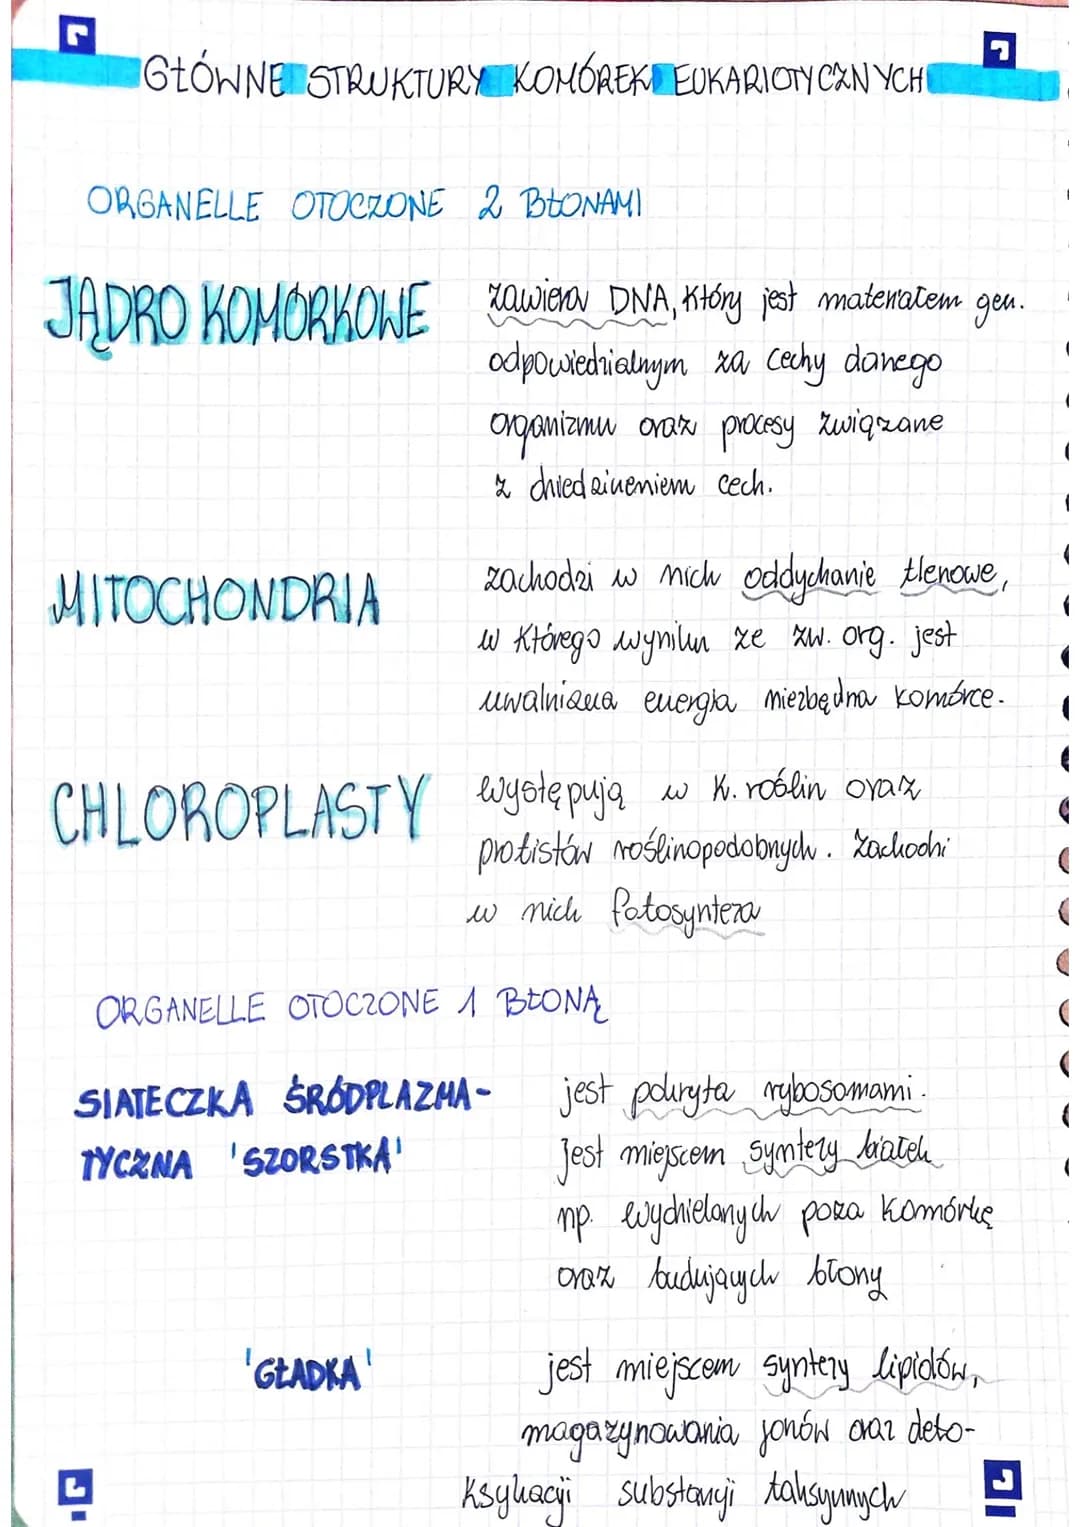 GŁÓWNE STRUKTURY KOMÓREK EUKARIOTYCZNYCH
ORGANELLE OTOCZONE 2 BŁONAMI
JĄDRO KOMÓRKOWE
zawiera DNA, który jest materiałem gen.
odpowiedzialnym za cechy danego
organizmu oraz procesy związane
z dziedziczeniem cech.
MITOCHONDRIA
zachodzi w nich oddychanie tlenowe,
w którego wyniku ze zw. org. jest
uwalniana energia niezbędna komórce.
CHLOROPLASTY
występują w k. roślin oraz
protistów roślinopodobnych. Zachodzi
w nich fotosynteza
ORGANELLE OTOCZONE 1 BŁONĄ
SIATECZKA ŚRÓDPLAZMA-
TYCZNA 'SZORSTKA'
jest pokryta rybosomami.
Jest miejscem syntezy białek
np. wydzielanych poza komórkę
oraz budujących błony
'GŁADKA'
jest miejscem syntezy lipidów,
magazynowania jonów oraz deto-
ksykacji substancji toksycznych